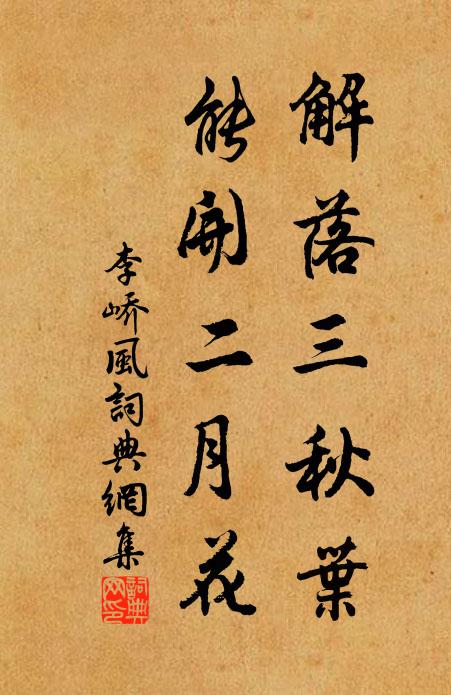 解落三秋葉
能開二月花
李嶠風詞典網集
詞典网印